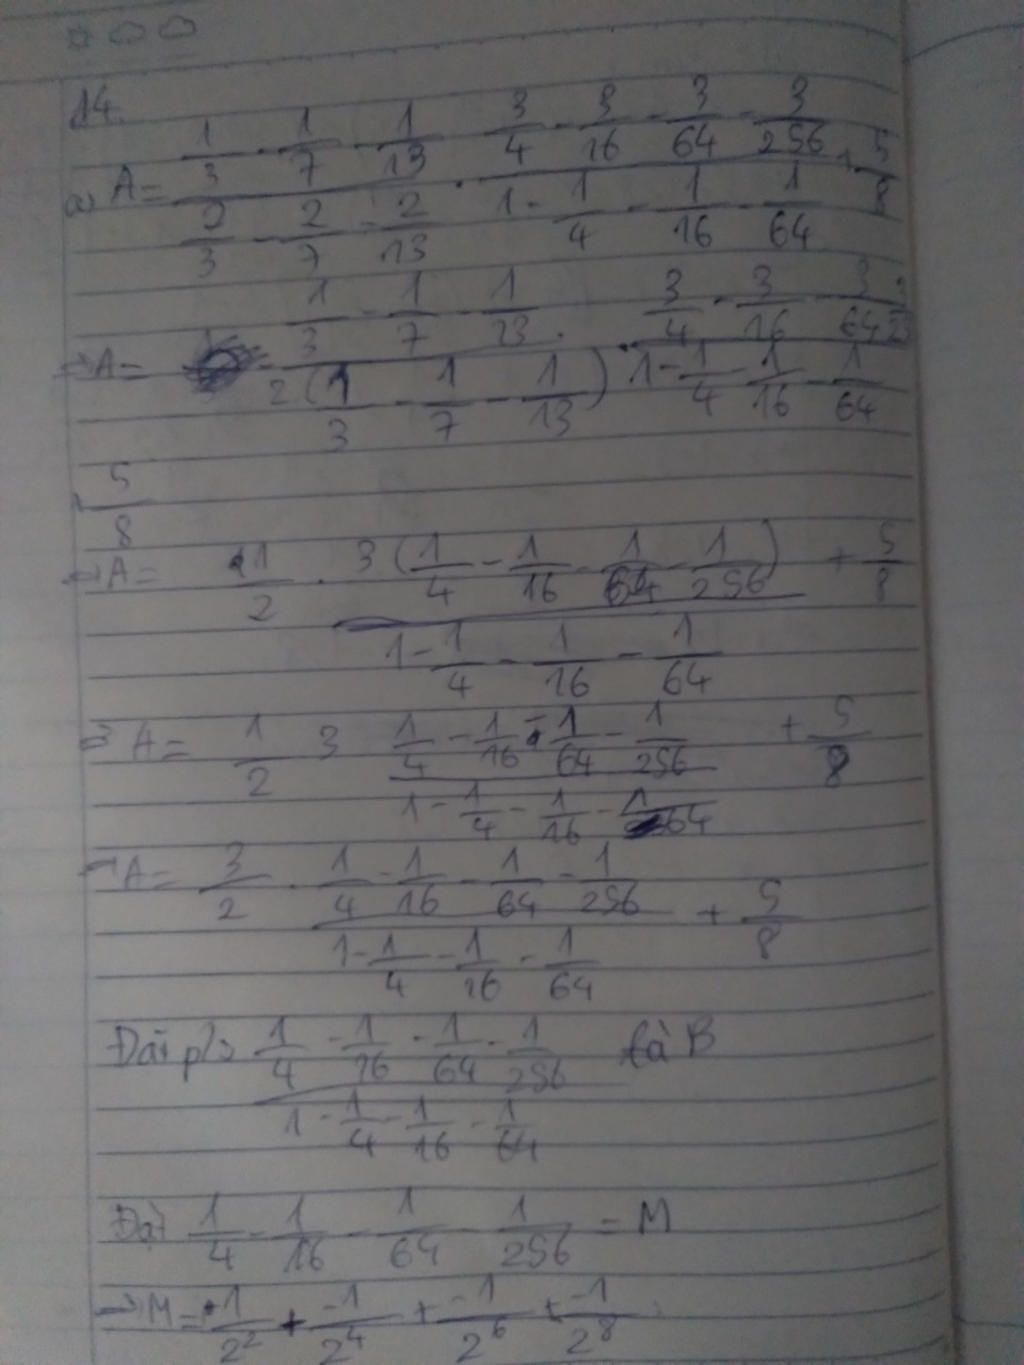 14.
a) A = \frac{\frac{1}{3} - \frac{1}{7} - \frac{1}{13}}{\frac{2}{3} - \frac{2}{7} - \frac{2}{13}} . \frac{\frac{3}{4} - \frac{3}{16} - \frac{3}{64} - \frac{3}{256}}{1 - \frac{1}{4} - \frac{1}{16} - \frac{1}{64}} + \frac{5}{8}
=> A = \frac{\frac{1}{3} - \frac{1}{7} - \frac{1}{13}}{2(\frac{1}{3} - \frac{1}{7} - \frac{1}{13})} . \frac{\frac{3}{4} - \frac{3}{16} - \frac{3}{64}}{1 - \frac{1}{4} - \frac{1}{16} - \frac{1}{64}}
\frac{5}{8}
=> A = \frac{1}{2} . \frac{3(\frac{1}{4} - \frac{1}{16} - \frac{1}{64} - \frac{1}{256})}{1 - \frac{1}{4} - \frac{1}{16} - \frac{1}{64}} + \frac{5}{8}
=> A = \frac{1}{2} 3 \frac{\frac{1}{4} - \frac{1}{16} - \frac{1}{64} - \frac{1}{256}}{1 - \frac{1}{4} - \frac{1}{16} - \frac{1}{64}} + \frac{5}{8}
=> A = \frac{3}{2} . \frac{\frac{1}{4} - \frac{1}{16} - \frac{1}{64} - \frac{1}{256}}{1 - \frac{1}{4} - \frac{1}{16} - \frac{1}{64}} + \frac{5}{8}
Đặt p/s \frac{\frac{1}{4} - \frac{1}{16} - \frac{1}{64} - \frac{1}{256}}{1 - \frac{1}{4} - \frac{1}{16} - \frac{1}{64}} là B
Đặt \frac{1}{4} - \frac{1}{16} - \frac{1}{64} - \frac{1}{256} = M
=> M = \frac{1}{2^2} + \frac{-1}{2^4} + \frac{-1}{2^6} + \frac{-1}{2^8}